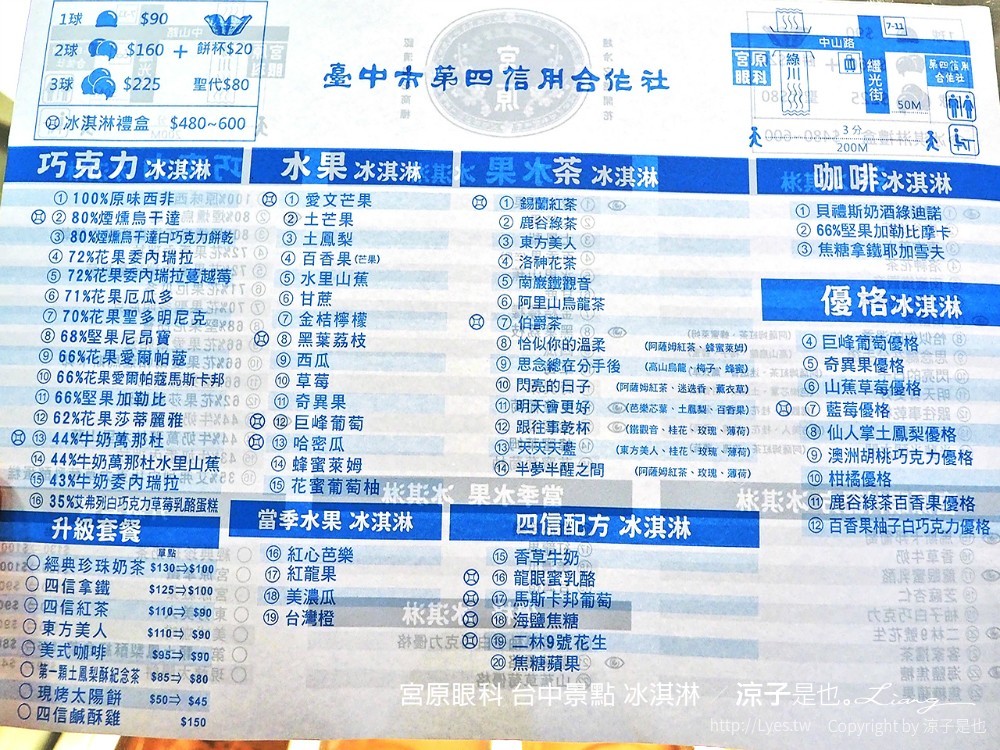 1球 $90
2球 $160 + 餅杯$20
3球 $225 聖代$80
冰淇淋禮盒 $480~600
臺中市第四信用合作社
宮原眼科
中山路
綠川
繼光街
7-11
第四信用合作社
50M
3分
200M
巧克力冰淇淋
① 100%原味西非
② 80%煙燻烏干達
③ 80%煙燻烏干達白巧克力餅乾
④ 72%花果委內瑞拉
⑤ 72%花果委內瑞拉蔓越莓
⑥ 71%花果厄瓜多
⑦ 70%花果聖多明尼克
⑧ 68%堅果尼昂寶
⑨ 66%花果愛爾帕蔻
⑩ 66%花果愛爾帕蔻馬斯卡邦
⑪ 66%堅果加勒比
⑫ 62%花果莎蒂麗雅
⑬ 44%牛奶萬那杜
⑭ 44%牛奶萬那杜水里山蕉
⑮ 43%牛奶委內瑞拉
⑯ 35%艾弗列白巧克力草莓乳酪蛋糕
水果冰淇淋
① 愛文芒果
② 土芒果
③ 土鳳梨
④ 百香果(芒果)
⑤ 水里山蕉
⑥ 甘蔗
⑦ 金桔檸檬
⑧ 黑葉荔枝
⑨ 西瓜
⑩ 草莓
⑪ 奇異果
⑫ 巨峰葡萄
⑬ 哈密瓜
⑭ 蜂蜜萊姆
⑮ 花蜜葡萄柚
茶冰淇淋
① 錫蘭紅茶
② 鹿谷綠茶
③ 東方美人
④ 洛神花茶
⑤ 南巖鐵觀音
⑥ 阿里山烏龍茶
⑦ 伯爵茶
⑧ 恰似你的溫柔 (阿薩姆紅茶、蜂蜜萊姆)
⑨ 思念總在分手後 (高山烏龍、梅子、蜂蜜)
⑩ 閃亮的日子 (阿薩姆紅茶、迷迭香、薰衣草)
⑪ 明天會更好 (芭樂芯葉、土鳳梨、百香果)
⑫ 跟往事乾杯 (鐵觀音、桂花、玫瑰、薄荷)
⑬ 天天天藍 (東方美人、桂花、玫瑰、薄荷)
⑭ 半夢半醒之間 (阿薩姆紅茶、玫瑰、薄荷)
咖啡冰淇淋
① 貝禮斯奶酒綠迪諾
② 66%堅果加勒比摩卡
③ 焦糖拿鐵耶加雪夫
優格冰淇淋
④ 巨峰葡萄優格
⑤ 奇異果優格
⑥ 山蕉草莓優格
⑦ 藍莓優格
⑧ 仙人掌土鳳梨優格
⑨ 澳洲胡桃巧克力優格
⑩ 柑橘優格
⑪ 鹿谷綠茶百香果優格
⑫ 百香果柚子白巧克力優格
升級套餐
單點
經典珍珠奶茶 $130⇒$100
四信拿鐵 $125⇒$100
四信紅茶 $110⇒$90
東方美人 $110⇒$90
美式咖啡 $95⇒$90
第一顆土鳳梨酥紀念茶 $85⇒$80
現烤太陽餅 $50⇒$45
四信鹹酥雞 $150
當季水果冰淇淋
⑯ 紅心芭樂
⑰ 紅龍果
⑱ 美濃瓜
⑲ 台灣橙
四信配方 冰淇淋
⑮ 香草牛奶
⑯ 龍眼蜜乳酪
⑰ 馬斯卡邦葡萄
⑱ 海鹽焦糖
⑲ 二林9號花生
⑳ 焦糖蘋果
宮原眼科 台中景點 冰淇淋 / 涼子是也。Liang
http://Lyes.tw Copyright by 涼子是也